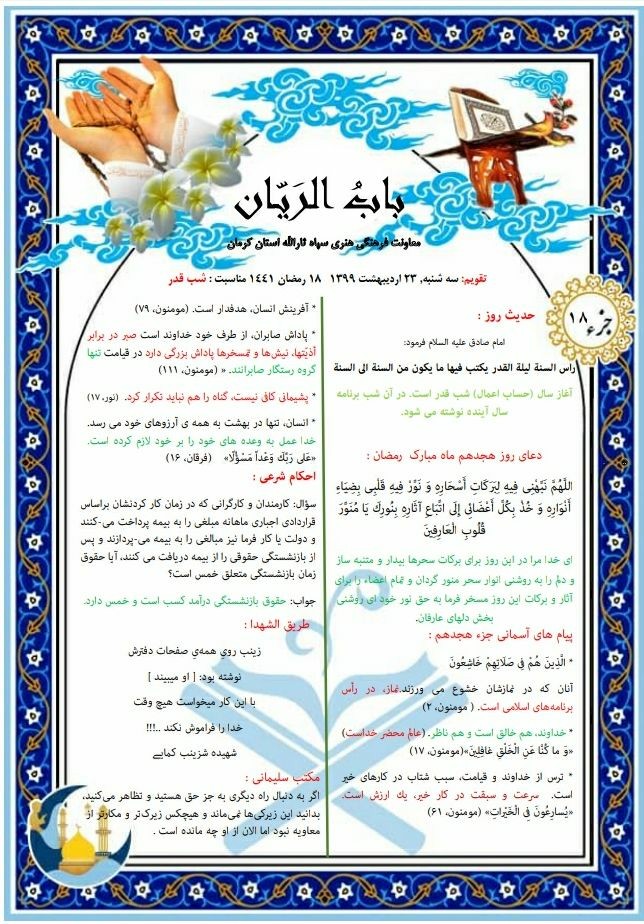 باب الرَیّان
معاونت فرهنگی هنری سپاه ثارالله استان کرمان
تقویم: سه شنبه, ۲۳ اردیبهشت ۱۳۹۹ ۱۸ رمضان ۱۴۴۱ مناسبت : شب قدر
جزء ۱۸
حدیث روز :
امام صادق علیه السلام فرمود:
راس السنة لیلة القدر یکتب فیها ما یکون من السنة الی السنة
آغاز سال (حساب اعمال) شب قدر است. در آن شب برنامه
سال آینده نوشته می شود.
دعای روز هجدهم ماه مبارک رمضان :
اللَّهُمَّ نَبِّهْنِي فِيهِ لِبَرَكَاتِ أَسْحَارِهِ وَ نَوِّرْ فِيهِ قَلْبِي بِضِيَاءِ
أَنْوَارِهِ وَ خُذْ بِكُلِّ أَعْضَائِي إِلَى اتِّبَاعِ آثَارِهِ بِنُورِكَ يَا مُنَوِّرَ
قُلُوبِ الْعَارِفِينَ
ای خدا مرا در این روز برای برکات سحرها بیدار و متنبه ساز
و دلم را به روشنی انوار سحر منور گردان و تمام اعضاء را برای
آثار و برکات این روز مسخر فرما به حق نور خود ای روشنی
بخش دلهای عارفان.
پیام های آسمانی جزء هجدهم :
* الَّذِينَ هُمْ فِي صَلَاتِهِمْ خَاشِعُونَ
آنان که در نمازشان خشوع می ورزند.نماز، در رأس
برنامه‌های اسلامی است. ( مومنون، ۲)
* خداوند، هم خالق است و هم ناظر. (عالم محضر خداست)
«وَ ما كُنَّا عَنِ الْخَلْقِ غافِلِينَ»(مومنون، ۱۷)
* ترس از خداوند و قیامت، سبب شتاب در کارهای خیر
است. سرعت و سبقت در کار خیر، یك ارزش است.
«يُسارِعُونَ فِي الْخَيْراتِ» (مومنون، ۶۱)
* آفرینش انسان، هدفدار است. (مومنون، ۷۹)
* پاداش صابران، از طرف خود خداوند است صبر در برابر
آذیّتها، نیش‌ها و تمسخرها پاداش بزرگی دارد در قیامت تنها
گروه رستگار صابرانند. « (مومنون، ۱۱۱)
* پشیمانی کافی نیست، گناه را هم نباید تکرار کرد. (نور، ۱۷)
* انسان، تنها در بهشت به همه ی آرزوهای خود می رسد.
خدا عمل به وعده های خود را بر خود لازم کرده است.
«عَلى رَبِّكَ وَعْداً مَسْؤُلًا» (فرقان، ۱۶)
احکام شرعی :
سؤال: کارمندان و کارگرانی که در زمان کار کردنشان براساس
قراردادی اجباری ماهانه مبلغی را به بیمه پرداخت می-کنند
و دولت یا کار فرما نیز مبالغی را به بیمه می-پردازند و پس
از بازنشستگی حقوقی را از بیمه دریافت می کنند، آیا حقوق
زمان بازنشستگی متعلق خمس است؟
جواب: حقوق بازنشستگی درآمد کسب است و خمس دارد.
طریق الشهدا :
زینب روي همه‌ي صفحات دفترش
نوشته بود: [ او میبیند ]
با این کار میخواست هیچ وقت
خدا را فراموش نکند ..!!!
شهیده شزینب کمایی
مکتب سلیمانی :
اگر به دنبال راه دیگری به جز حق هستید و تظاهر می‌کنید،
بدانید این زیرکی‌ها نمی‌ماند و هیچکس زیرک‌تر و مکارتر از
معاویه نبود اما الان از او چه مانده است .